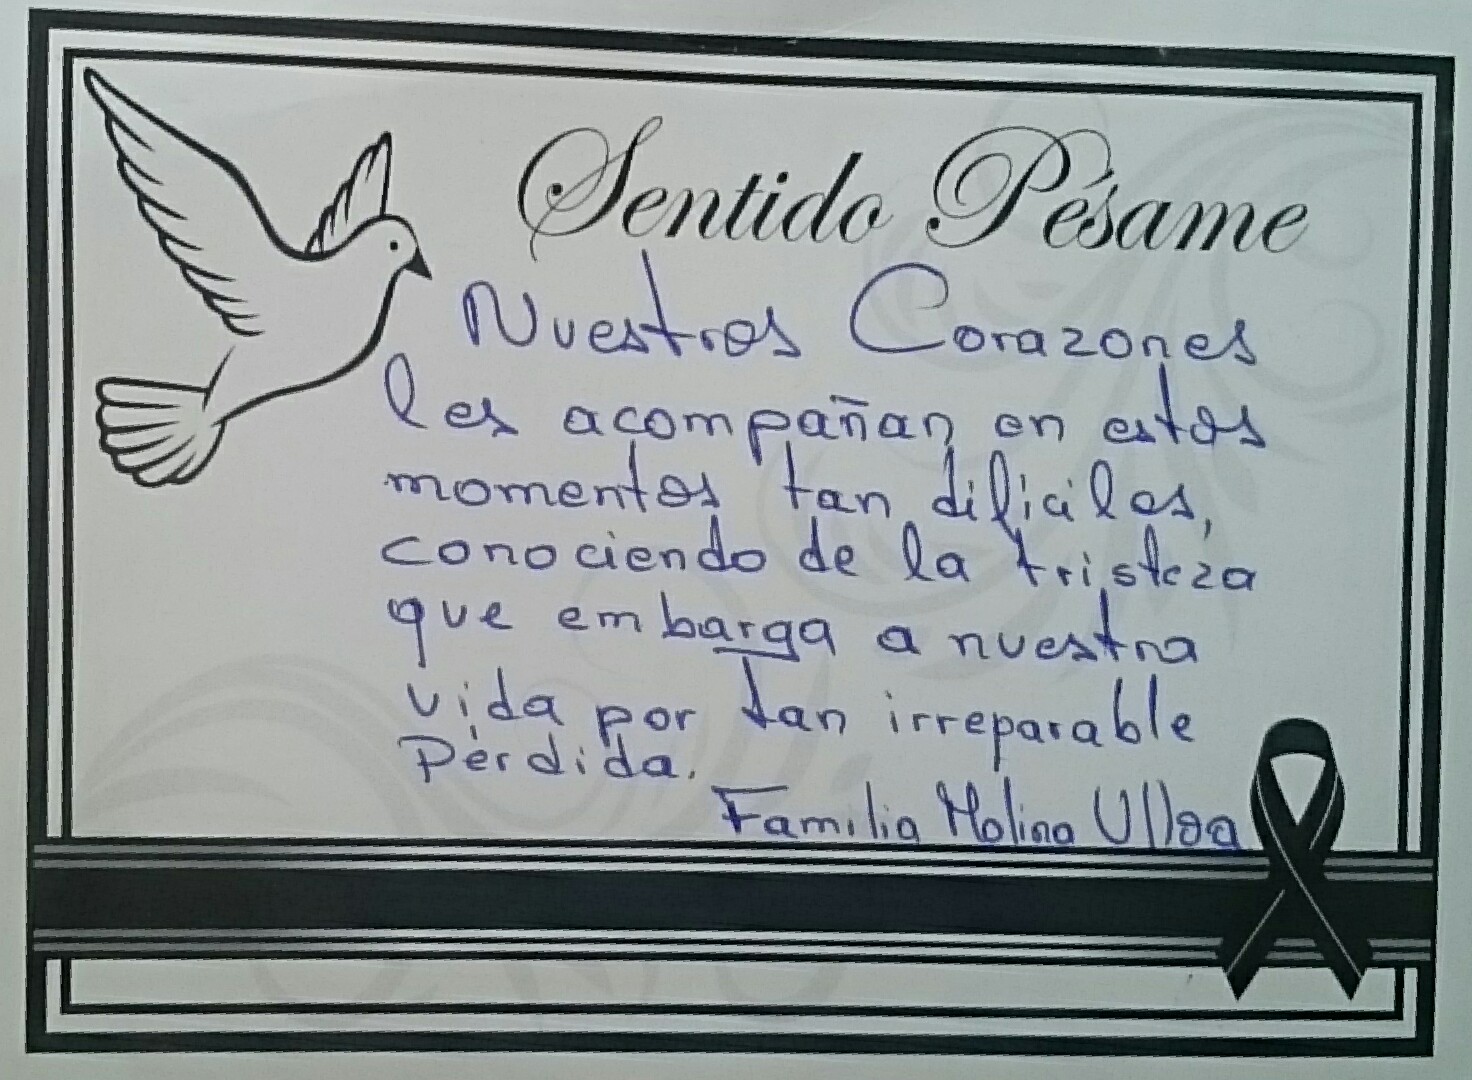 Sentido Pésame
Nuestros Corazones
les acompañan en estos
momentos tan dificiles,
conociendo de la tristeza
que embarga a nuestra
vida por tan irreparable
Perdida.
Familia Molina Ulloa